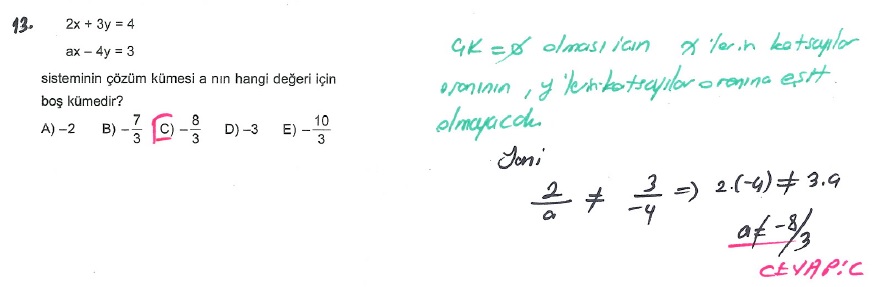 13. 2x + 3y = 4
ax – 4y = 3
sisteminin çözüm kümesi a nın hangi değeri için
boş kümedir?
A) –2 B) –7/3 C) –8/3 D) –3 E) –10/3
ÇK = ∅ olması için x 'lerin katsayılar
oranının, y 'lerin katsayılar oranına eşit
olmayacak.
Yani
2/a ≠ 3/-4 => 2.(-4) ≠ 3.a
a ≠ -8/3
CEVAP: C